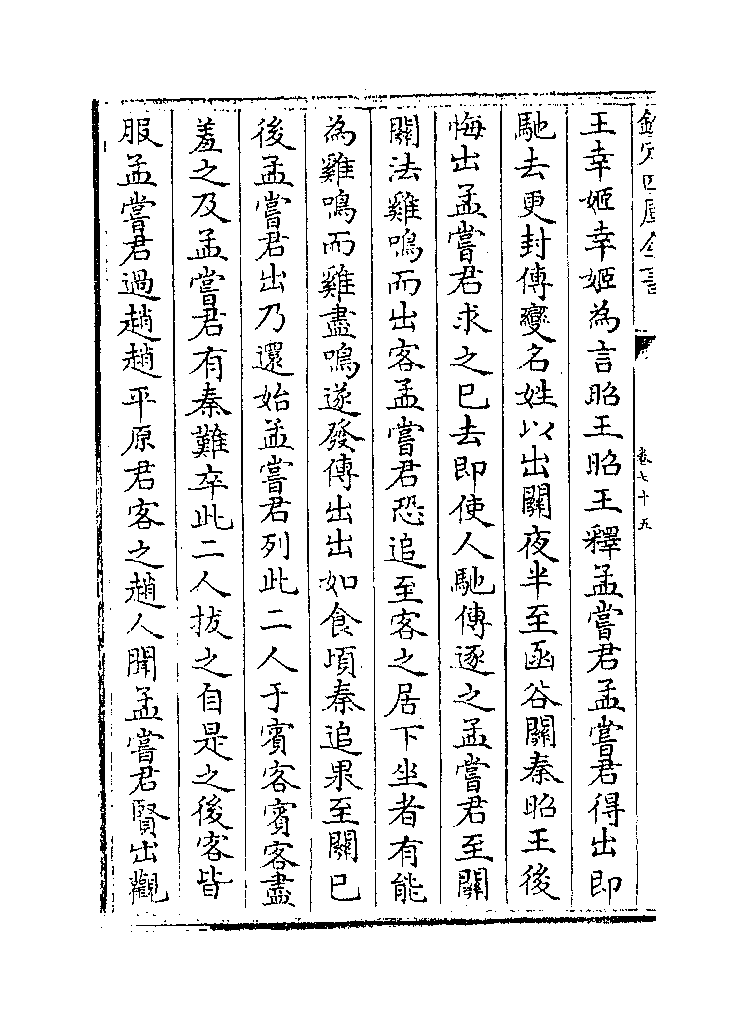 欽定四庫全書
卷七十五
王幸姬幸姬為言昭王昭王釋孟嘗君孟嘗君得出即
馳去更封傳變名姓以出關夜半至函谷關秦昭王後
悔出孟嘗君求之已去即使人馳傳逐之孟嘗君至關
關法雞鳴而出客孟嘗君恐追至客之居下坐者有能
為雞鳴而雞盡鳴遂發傳出出如食頃秦追果至關已
後孟嘗君出乃還始孟嘗君列此二人于賓客賓客盡
羞之及孟嘗君有秦難卒此二人拔之自是之後客皆
服孟嘗君過趙趙平原君客之趙人聞孟嘗君賢出觀